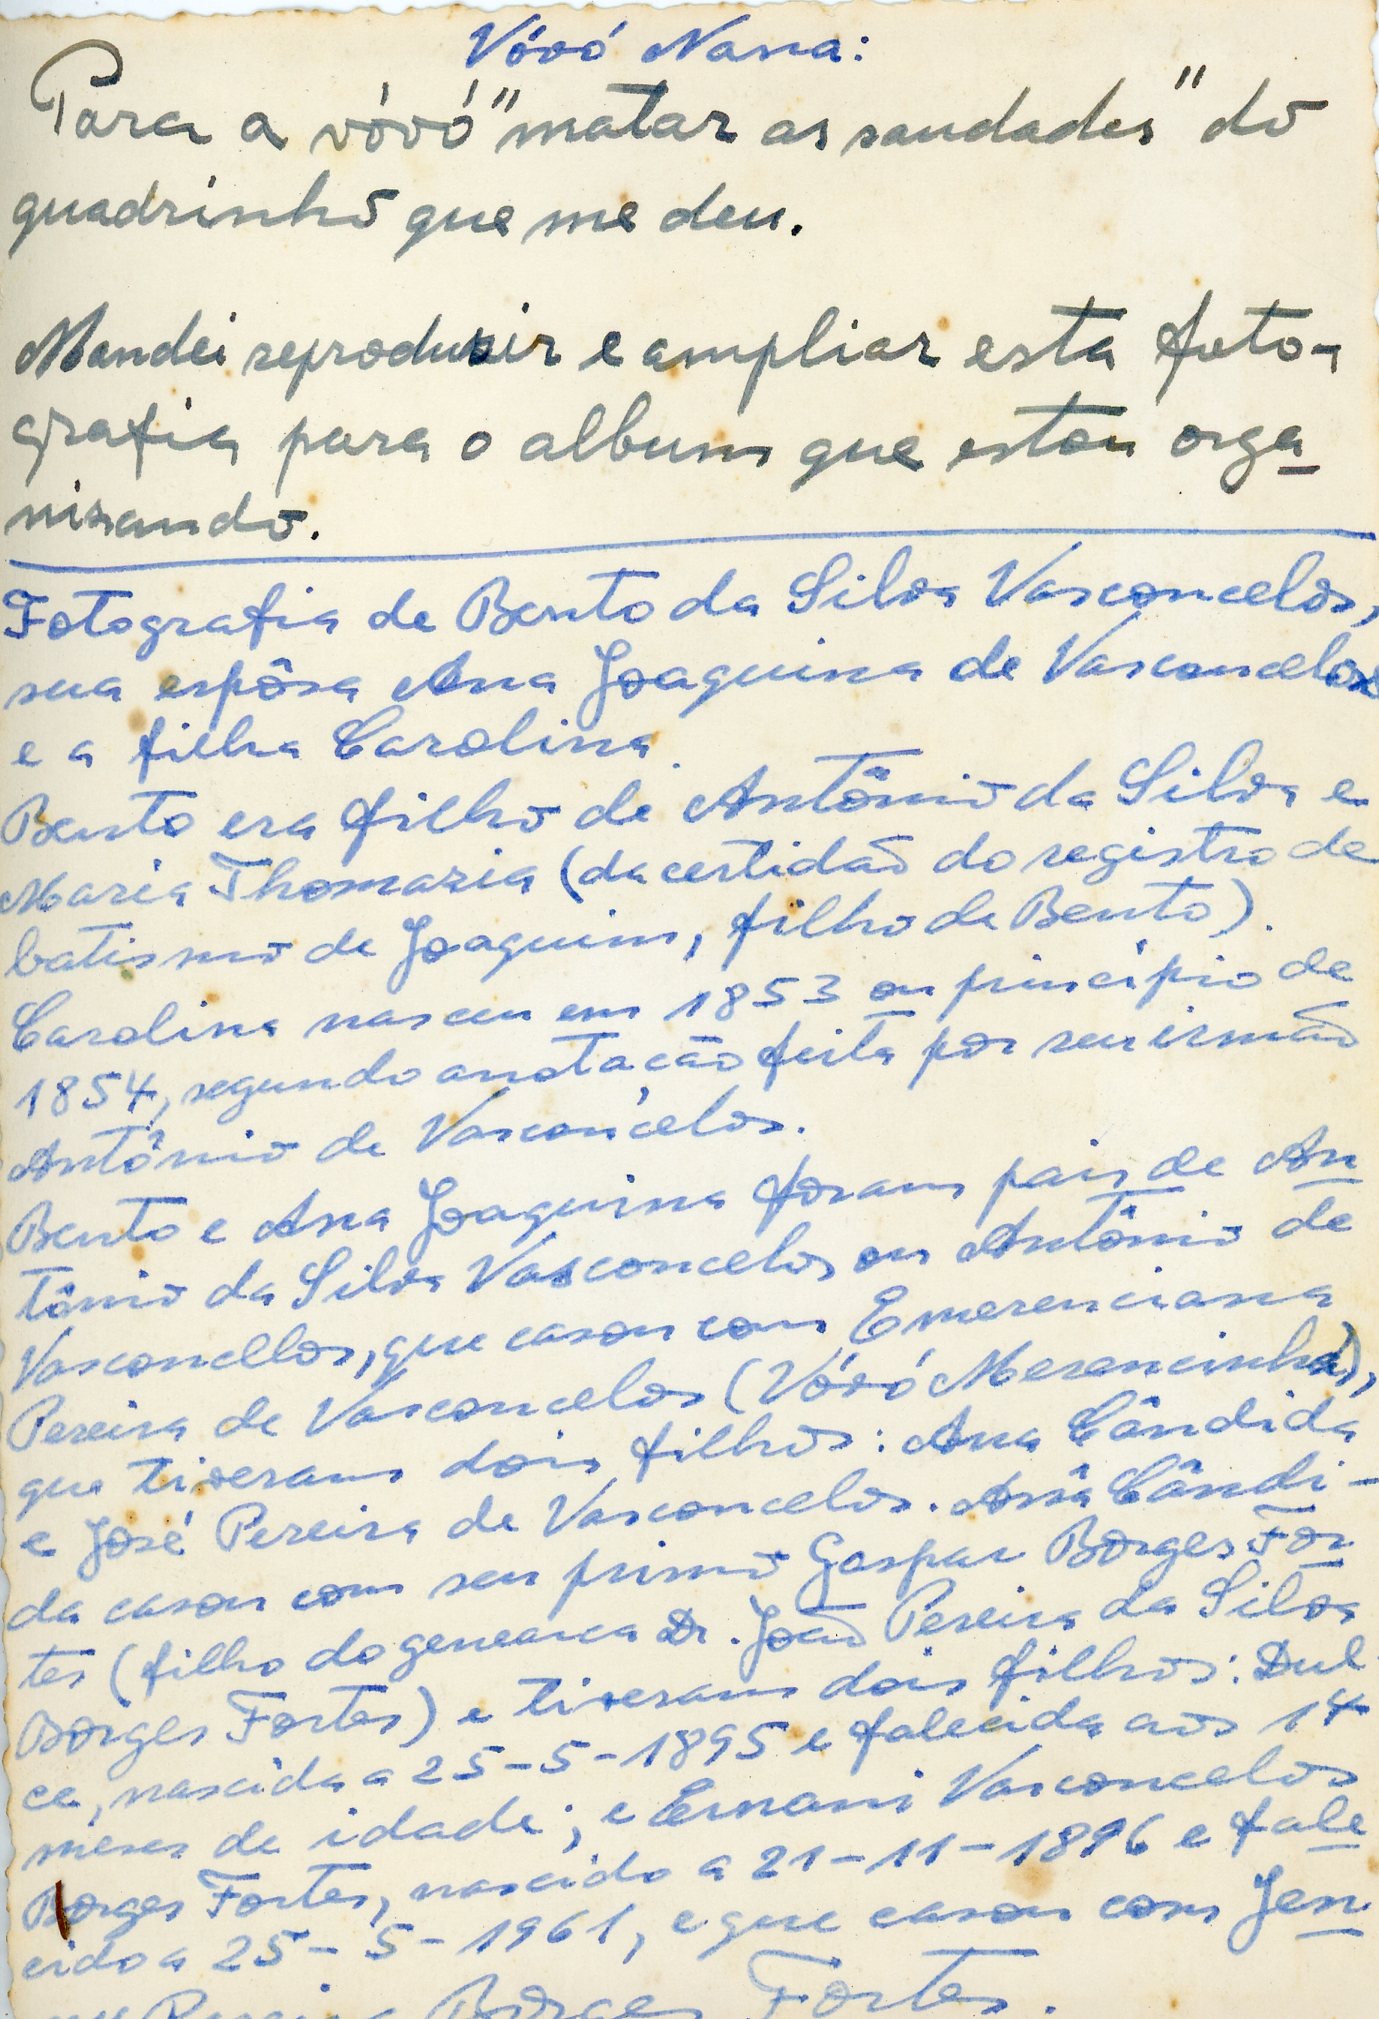 Vóvó Nana:
Para a vóvó "matar as saudades" do
quadrinho que me deu.
Mandei reproduzir e ampliar esta foto-
grafia para o album que estou orga-
nizando.
Fotografia de Bento da Silva Vasconcelos,
sua espôsa Ana Joaquina de Vasconcelos
e a filha Carolina.
Bento era filho de Antônio da Silva e
Maria Thomazia (da certidão do registro de
batismo de Joaquim, filho de Bento).
Carolina nasceu em 1853 ou princípio de
1854, segundo anotação feita por seu irmão
Antônio de Vasconcelos.
Bento e Ana Joaquina foram pais de An-
tônio da Silva Vasconcelos ou Antônio de
Vasconcellos, que casou com Emerenciana
Pereira de Vasconcelos (Vóvó Merencinha),
que tiveram dois filhos: Ana Cândida
e José Pereira de Vasconcelos. Ana Cândi-
da casou com seu primo Gaspar Borges For-
tes (filho do genearca Dr. João Pereira da Silva
Borges Fortes) e tiveram dois filhos: Dul-
ce, nascida a 25-5-1895 e falecida aos 14
meses de idade; e Ernani Vasconcelos
Borges Fortes, nascido a 21-11-1896 e fale-
cido a 25-5-1961, e que casou com Jen-
Pereira Borges Fortes.